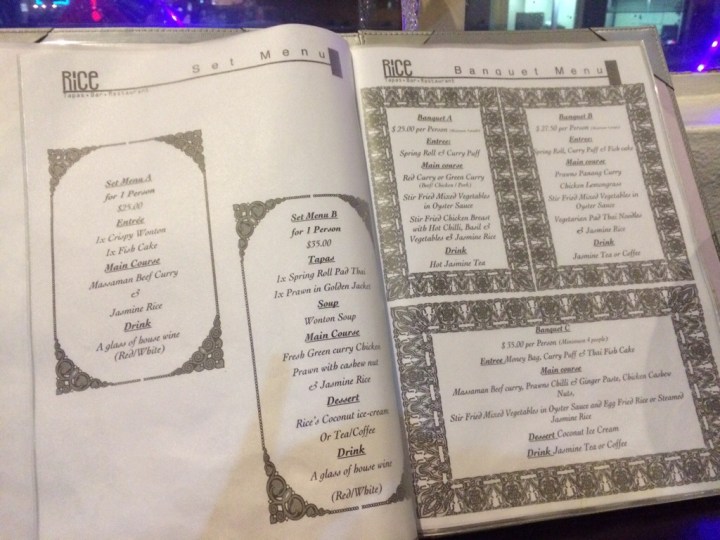 RiCE
Tapas • Bar • Restaurant
Set Menu
Set Menu A
for 1 Person
$25.00
Entrée
1x Crispy Wonton
1x Fish Cake
Main Course
Massaman Beef Curry
&
Jasmine Rice
Drink
A glass of house wine
(Red/White)
Set Menu B
for 1 Person
$35.00
Tapas
1x Spring Roll Pad Thai
1x Prawn in Golden Jacket
Soup
Wonton Soup
Main Course
Fresh Green curry Chicken
Prawn with cashew nut
& Jasmine Rice
Dessert
Rice's Coconut ice-cream
Or Tea/Coffee
Drink
A glass of house wine
(Red/White)
RiCE
Tapas • Bar • Restaurant
Banquet Menu
Banquet A
$ 25.00 per Person
Entree:
Spring Roll & Curry Puff
Main course
Red Curry or Green Curry
(Beef/Chicken/Pork)
Stir Fried Mixed Vegetables
in Oyster Sauce
Stir Fried Chicken Breast
with Hot Chilli, Basil &
Vegetables & Jasmine Rice
Drink
Hot Jasmine Tea
Banquet B
$ 27.50 per Person
Entree:
Spring Roll, Curry Puff & Fish cake
Main course
Prawns Panang Curry
Chicken Lemongrass
Stir Fried Mixed Vegetables in
Oyster Sauce
Vegetarian Pad Thai Noodles
& Jasmine Rice
Drink
Jasmine Tea or Coffee
Banquet C
$ 35.00 per Person (Minimum 4 people)
Entree Money Bag, Curry Puff & Thai Fish Cake
Main course
Massaman Beef curry, Prawns Chilli & Ginger Paste, Chicken Cashew
Nuts,
Stir Fried Mixed Vegetables in Oyster Sauce and Egg Fried Rice or Steamed
Jasmine Rice
Dessert Coconut Ice Cream
Drink Jasmine Tea or Coffee